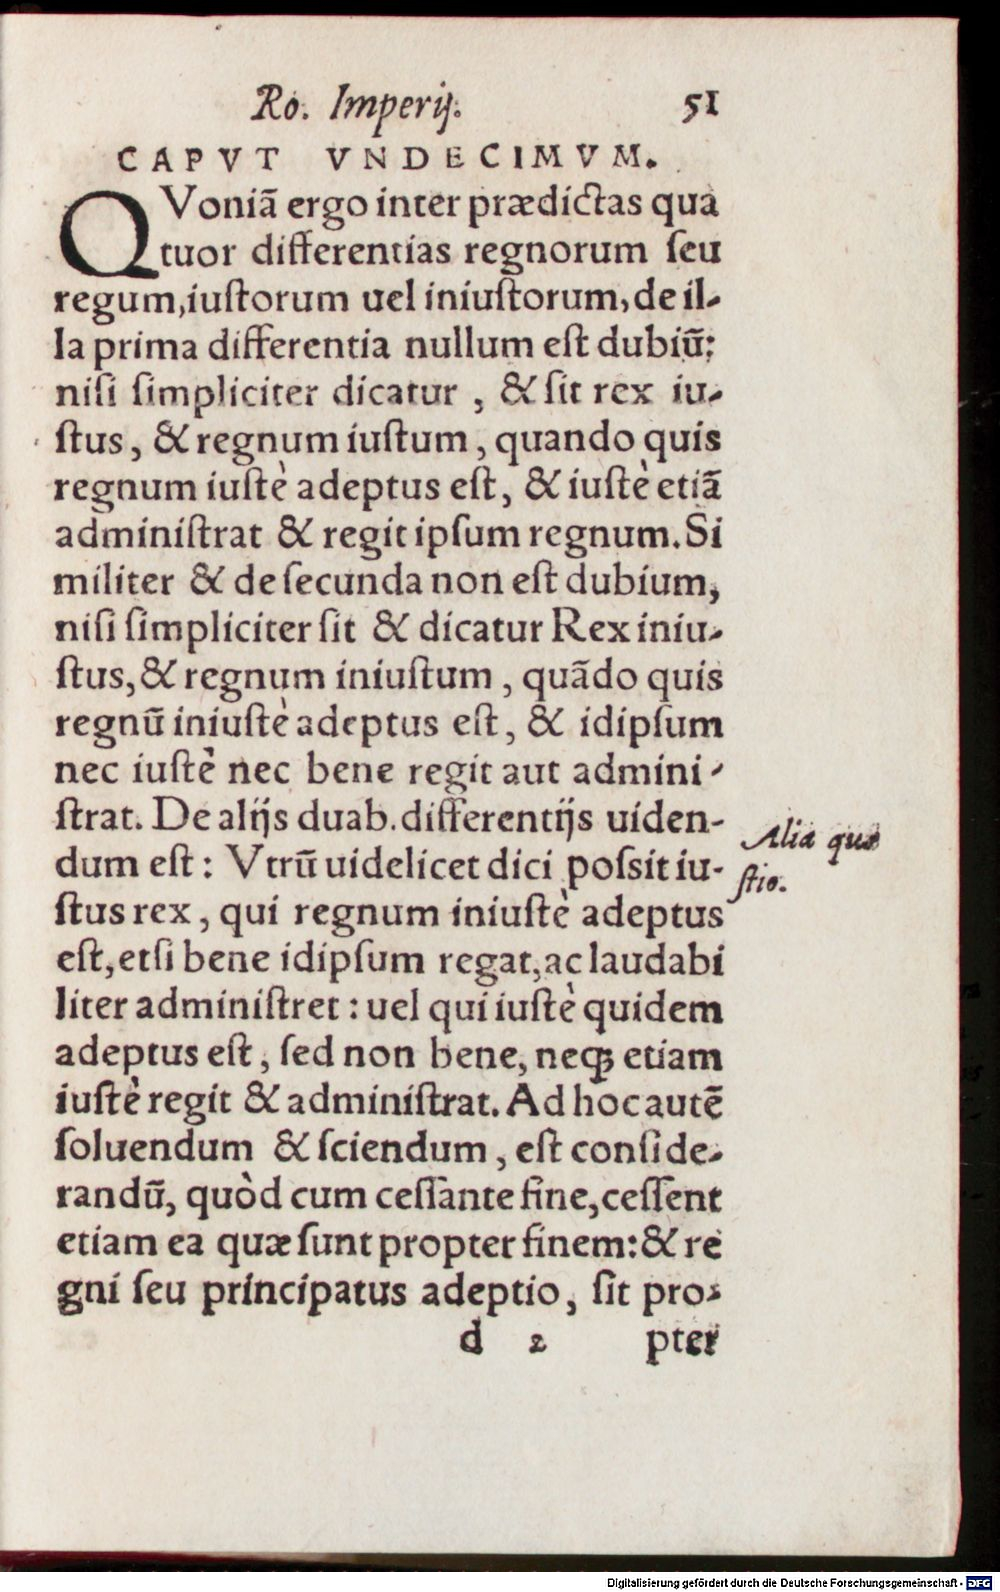 Ro. Imperij. 51
CAPVT VNDECIMVM.
QVoniã ergo inter prædictas qua
tuor differentias regnorum ſeu
regum, iuſtorum uel iniuſtorum, de il-
la prima differentia nullum eſt dubiũ:
niſi ſimpliciter dicatur , & ſit rex iu-
ſtus , & regnum iuſtum , quando quis
regnum iuſtè adeptus eſt, & iuſtè etiã
adminiſtrat & regit ipſum regnum. Si
militer & de ſecunda non eſt dubium,
niſi ſimpliciter ſit & dicatur Rex iniu-
ſtus, & regnum iniuſtum , quãdo quis
regnũ iniuſtè adeptus eſt, & idipſum
nec iuſtè nec bene regit aut admini-
ſtrat. De alijs duab. differentijs uiden-
dum eſt : Vtrũ uidelicet dici poſsit iu-
ſtus rex , qui regnum iniuſtè adeptus
eſt, etſi bene idipſum regat, ac laudabi
liter adminiſtret : uel qui iuſtè quidem
adeptus eſt , ſed non bene, neqꝫ etiam
iuſtè regit & adminiſtrat. Ad hoc autẽ
ſoluendum & ſciendum , eſt conſide-
randũ, quòd cum ceſſante fine, ceſſent
etiam ea quæ ſunt propter finem: & re
gni ſeu principatus adeptio, ſit pro-
d 2 pter
Alia quæ
ſtio.
Digitalisierung gefördert durch die Deutsche Forschungsgemeinschaft - DFG